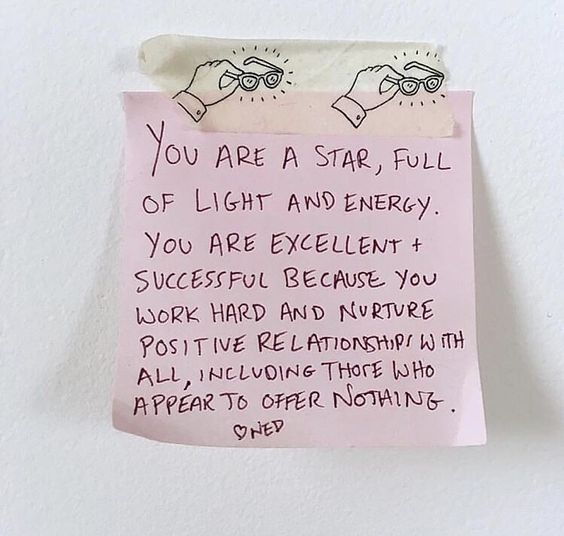 YOU ARE A STAR, FULL
OF LIGHT AND ENERGY.
YOU ARE EXCELLENT +
SUCCESSFUL BECAUSE YOU
WORK HARD AND NURTURE
POSITIVE RELATIONSHIPS WITH
ALL, INCLUDING THOSE WHO
APPEAR TO OFFER NOTHING.
♡NED